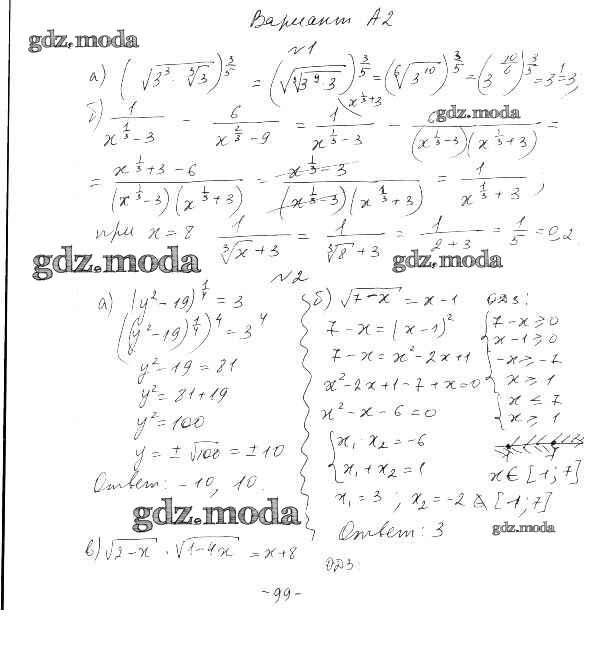 Вариант А2
gdz.moda
№1
а) (√(3³·∛3))^(3/5) = (√(∛(3⁹·3)))^(3/5) = (⁶√(3¹⁰))^(3/5) = (3^(10/6))^(3/5) = 3¹ = 3,
x^(1/3)+3
gdz.moda
б) 1/(x^(1/3) − 3) − 6/(x^(2/3) − 9) = 1/(x^(1/3) − 3) − 6/((x^(1/3) − 3)(x^(1/3) + 3)) =
= (x^(1/3) + 3 − 6)/((x^(1/3) − 3)(x^(1/3) + 3)) = (x^(1/3) − 3)/((x^(1/3) − 3)(x^(1/3) + 3)) = 1/(x^(1/3) + 3) ;
при x = 8 1/(∛x + 3) = 1/(∛8 + 3) = 1/(2 + 3) = 1/5 = 0,2
gdz.moda gdz.moda
№2
а) (y² − 19)^(1/4) = 3
((y² − 19)^(1/4))⁴ = 3⁴
y² − 19 = 81
y² = 81 + 19
y² = 100
y = ± √100 = ± 10
Ответ: −10, 10.
б) √(7 − x) = x − 1
7 − x = (x − 1)²
7 − x = x² − 2x + 1
x² − 2x + 1 − 7 + x = 0
x² − x − 6 = 0
{ x₁ · x₂ = −6
{ x₁ + x₂ = 1
x₁ = 3 ; x₂ = −2 ∉ [1; 7]
Ответ: 3
ОДЗ:
{ 7 − x ≥ 0
{ x − 1 ≥ 0
{ −x ≥ −7
{ x ≥ 1
{ x ≤ 7
{ x ≥ 1
1 7
x ∈ [1; 7]
gdz.moda
gdz.moda
в) √(2 − x) · √(1 − 4x) = x + 8 ОДЗ:
−99−